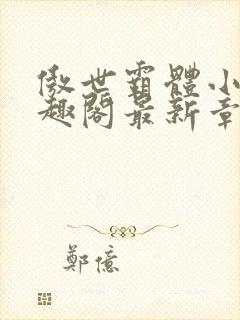 傲世霸體小
趣閣最新章
鄭億